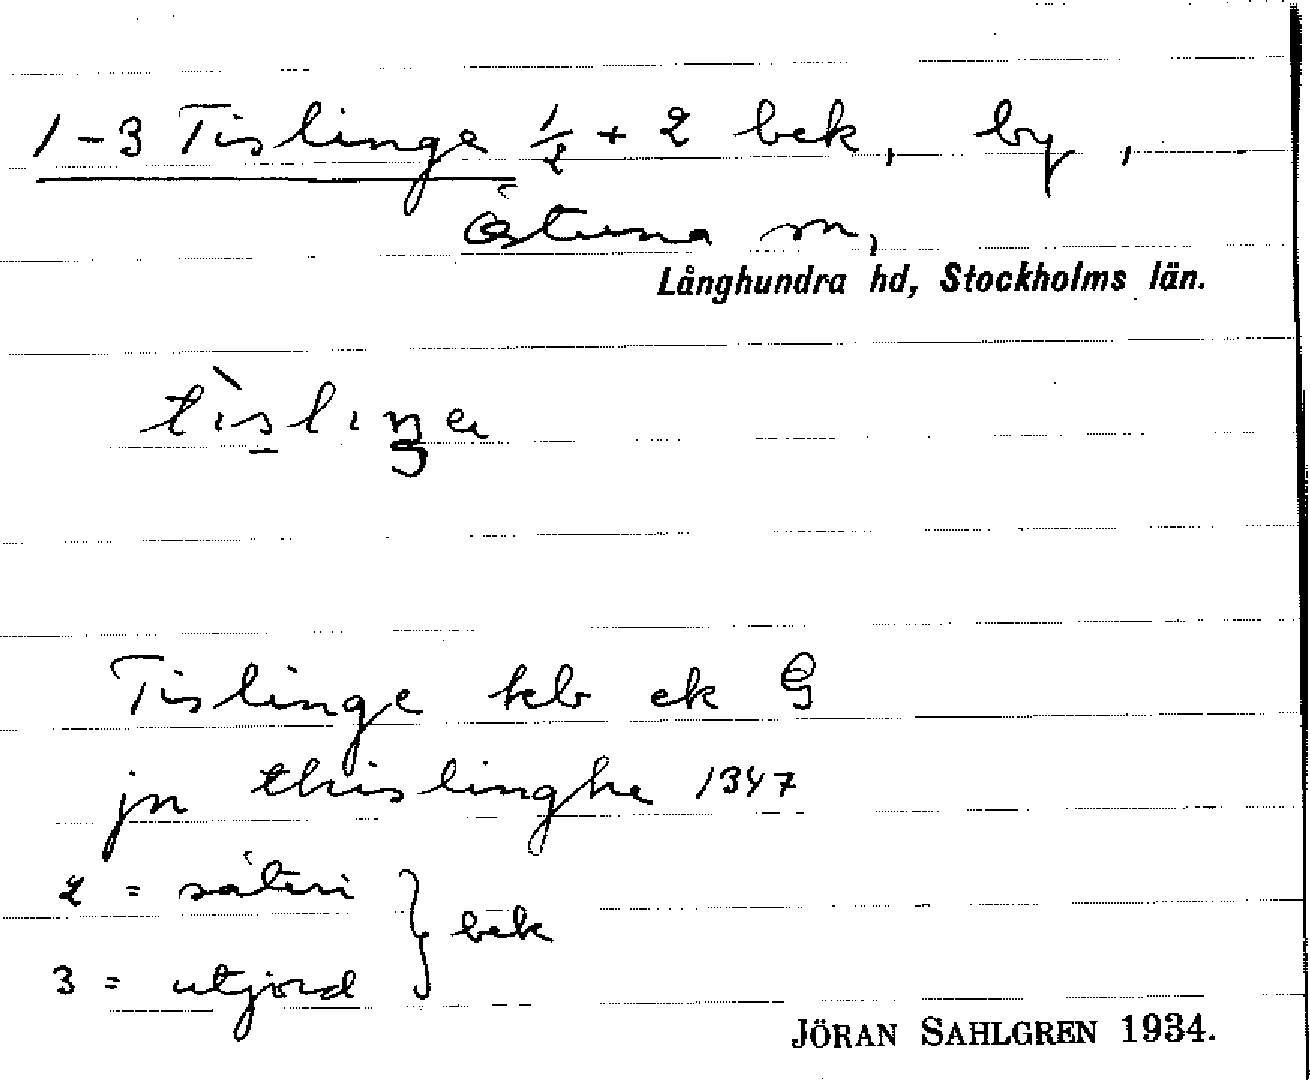 1-3 Tislinge ½ + 2 bek, by,
Östuna sn,
Långhundra hd, Stockholms län.
tìslıŋe
Tislinge kb ek G
jn thislinghe 1347
2 = säteri } bek
3 = utjord
JÖRAN SAHLGREN 1934.